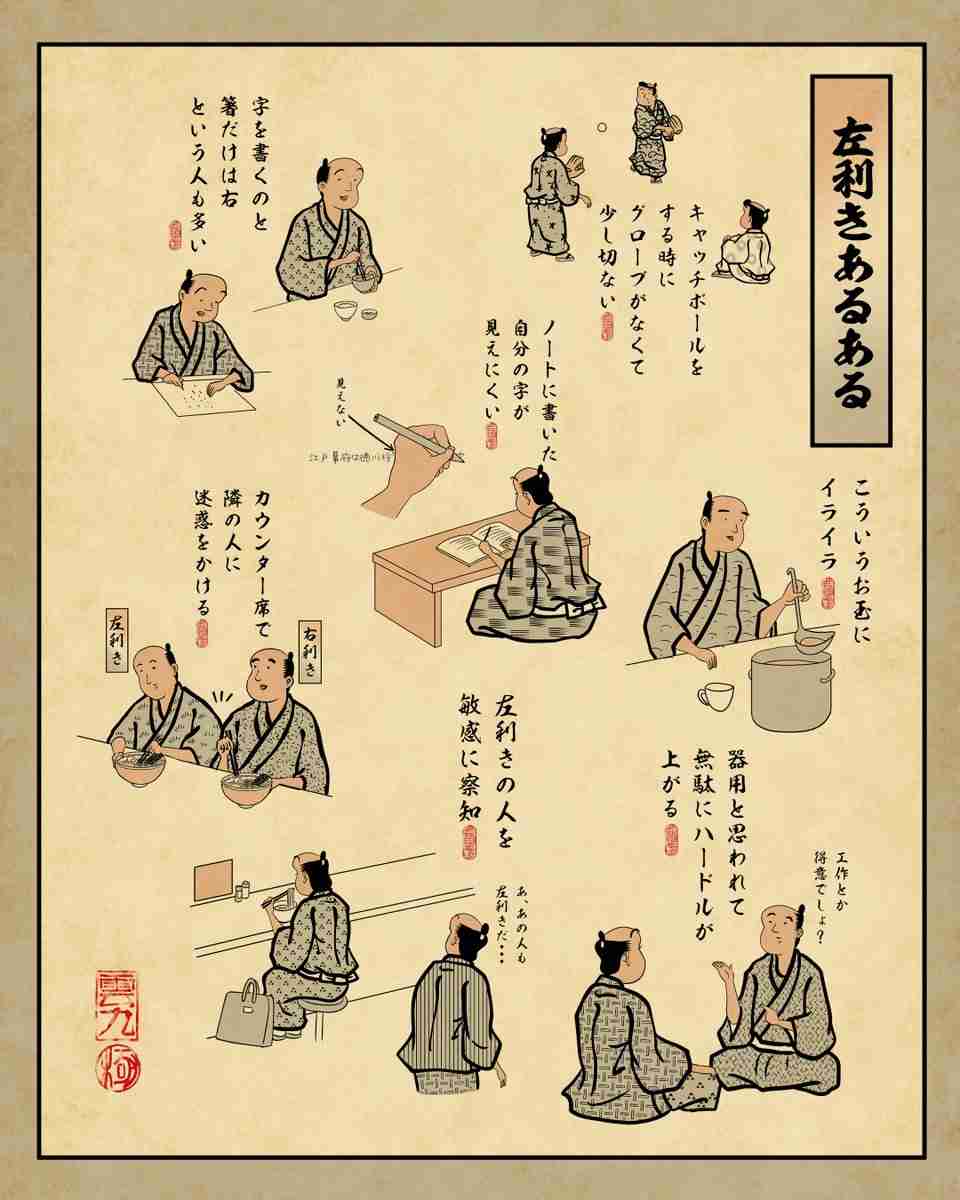 左利きあるある
キャッチボールを
する時に
グローブがなくて
少し切ない
字を書くのと
箸だけは右
という人も多い
ノートに書いた
自分の字が
見えにくい
見えない
江戸幕府は徳川将
こういうお玉に
イライラ
カウンター席で
隣の人に
迷惑をかける
右利き
左利き
器用と思われて
無駄にハードルが
上がる
工作とか
得意でしょ?
左利きの人を
敏感に察知
あ、あの人も
左利きだ・・・